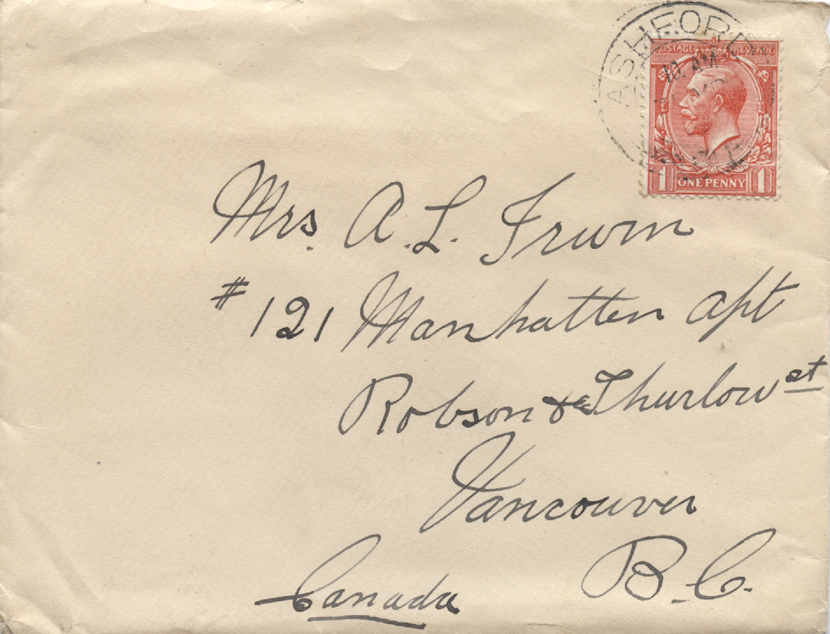 ASHFORD
POSTAGE REVENUE
10. AM
1 ONE PENNY 1
Mrs. A. L. Irwin
#121 Manhatten apt
Robson & Thurlow st
Vancouver
B.C.
Canada